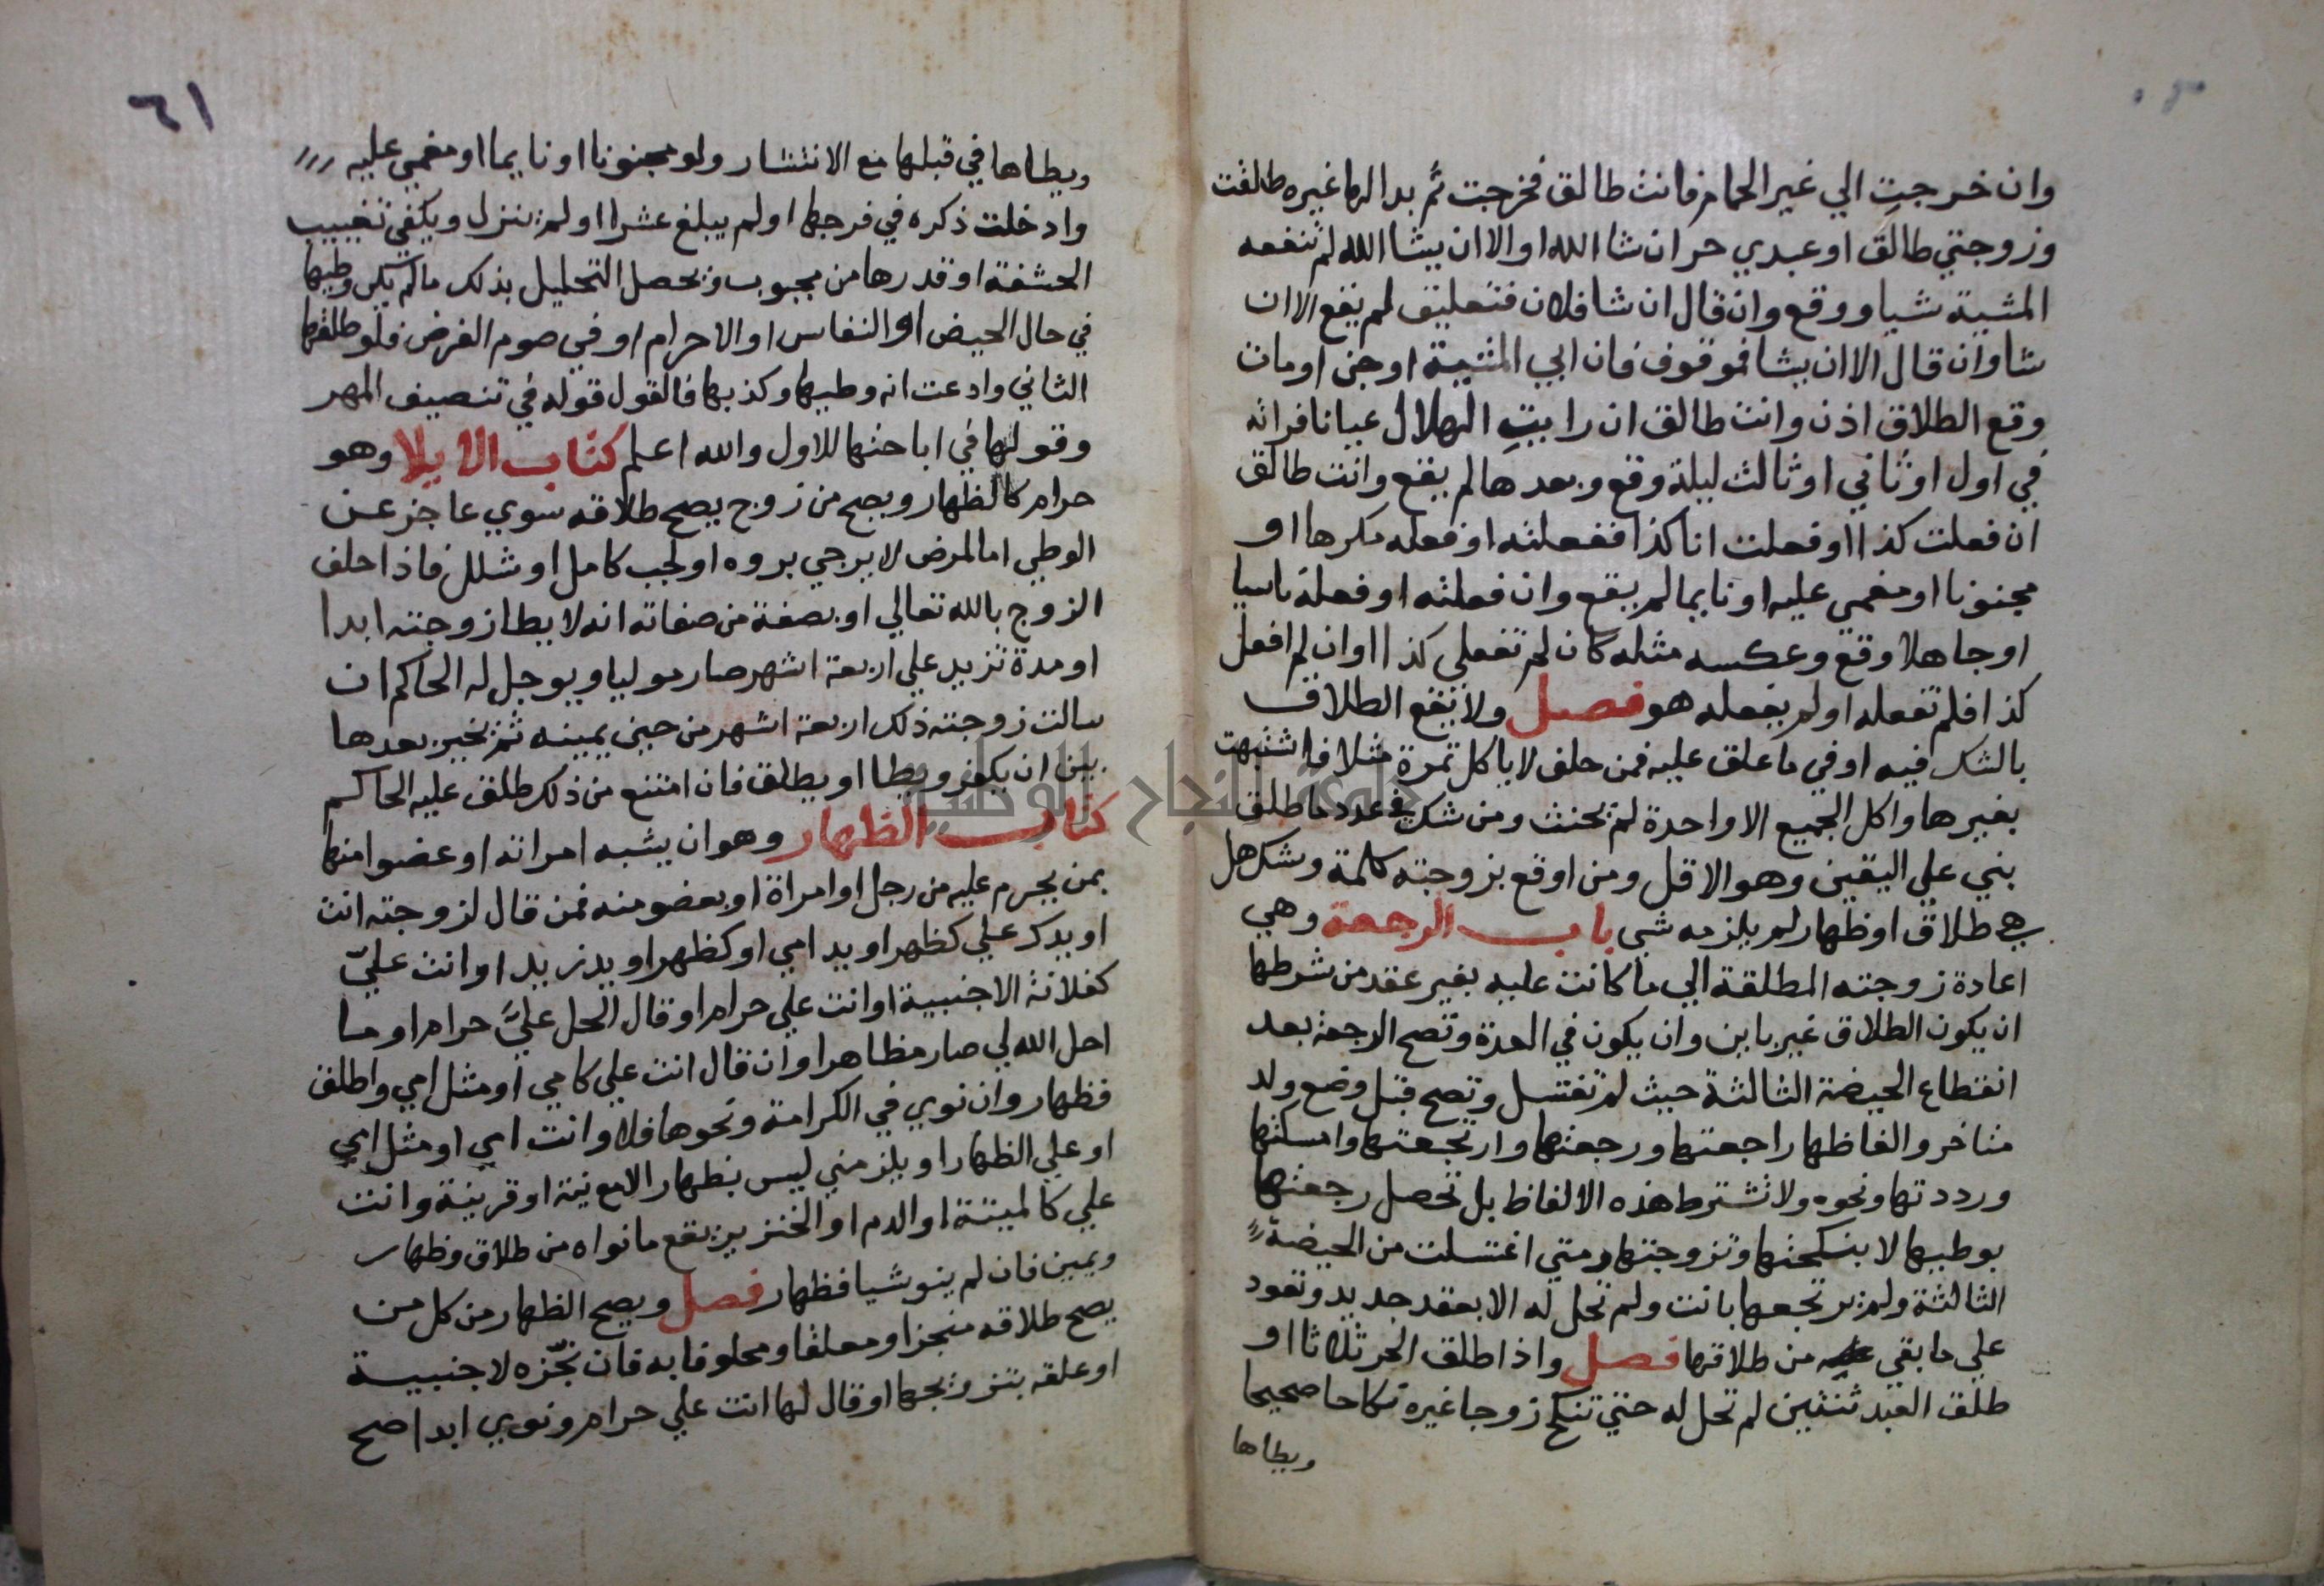 وان خرجتِ الي غير الحمام فانت طالق فخرجت ثم بدا لها غيره طلقت
وزوجتي طالق او عبدي حر ان شا الله او الا ان يشا الله لم تنفعه
المشية شيا ووقع وان قال ان شا فلان فتعليق لم يقع الا ان
شا وان قال الا ان يشا فموقوف فان ابي المشية او جن او مات
وقع الطلاق اذن وانت طالق ان رايتِ الهلال عيانا فراته
في اول او ثاني او ثالث ليلة وقع وبعدها لم يقع وانت طالق
ان فعلت كذا او فعلت انا كذا ففعلته او فعله مكرها او
مجنونا او مغمي عليه او نايما لم يقع وان فعلته او فعله ناسيا
او جاهلا وقع وعكسه مثله كان لم تفعلي كذا او ان لم افعل
كذا فلم تفعله او لم يفعله هو فصل ولا يقع الطلاق
بالشك فيه او في ما علق عليه فمن حلف لا ياكل تمرة مثلا فاشتبهت
بغيرها واكل الجميع الا واحدة لم يحنث ومن شك في عدد ما طلق
بني علي اليقين وهو الاقل ومن اوقع بزوجته كلمة وشك هل
هي طلاق او ظهار لم يلزمه شي باب الرجعة وهي
اعادة زوجته المطلقة الي ما كانت عليه بغير عقد من شرطها
ان يكون الطلاق غير باين وان يكون في العدة وتصح الرجعة بعد
انقطاع الحيضة الثالثة حيث لم تغتسل وتصح قبل وضع ولد
متاخر والفاظها راجعتها ورجعتها وارتجعتها وامسكتها
ورددتها ونحوه ولا تشترط هذه الالفاظ بل تحصل رجعتها
بوطيها لا بنكحتها وتزوجتها ومتي اغتسلت من الحيضة
الثالثة ولم يرتجعها بانت ولم تحل له الا بعقد جديد وتعود
علي ما بقي من طلاقها فصل واذا طلق الحر ثلاثا او
طلق العبد ثنتين لم تحل له حتي تنكح زوجا غيره نكاحا صحيحا
ويطاها
٦١
ويطاها في قبلها مع الانتشار ولو مجنونا او نايما او مغمي عليه
وادخلت ذكره في فرجها او لم يبلغ عشرا او لم ينزل ويكفي تغييب
الحشفة او قدرها من مجبوب ويحصل التحليل بذلك ما لم يكن وطيها
في حال الحيض او النفاس او الاحرام او في صوم الفرض فلو طلقها
الثاني وادعت انه وطيها وكذبها فالقول قوله في تنصيف المهر
وقولها في اباحتها للاول والله اعلم كتاب الايلا وهو
حرام كالظهار ويصح من زوج يصح طلاقه سوي عاجز عن
الوطي اما لمرض لا يرجي بروه او لجب كامل او شلل فاذا حلف
الزوج بالله تعالي او بصفة من صفاته انه لا يطا زوجته ابدا
او مدة تزيد علي اربعة اشهر صار موليا ويوجل له الحاكم ان
سالت زوجته ذلك اربعة اشهر من حين يمينه ثم يخير بعدها
بين ان يكفر ويطا او يطلق فان امتنع من ذلك طلق عليه الحاكم
كتاب الظهار وهو ان يشبه امراته او عضوا منها
بمن يحرم عليه من رجل او امراة او بعضو منه فمن قال لزوجته انت
او يدك علي كظهر او يد امي او كظهر او يد زيد او انت عليّ
كفلانة الاجنبية او انت علي حرام او قال الحل عليَّ حرام او ما
احل الله لي صار مظاهرا وان قال انت علي كامي او مثل امي واطلق
فظهار وان نوي في الكرامة ونحوها فلا وانت امي او مثل امي
او علي الظهار او يلزمني ليس بظهار الا مع نية او قرينة وانت
علي كالميتة او الدم او الخنزير يقع ما نواه من طلاق وظهار
ويمين فان لم ينو شيا فظهار فصل ويصح الظهار من كل من
يصح طلاقه منجزا او معلقا او محلوفا به فان نجّزه لاجنبية
او علقه بتزويجها او قال لها انت علي حرام ونوي ابدا صح